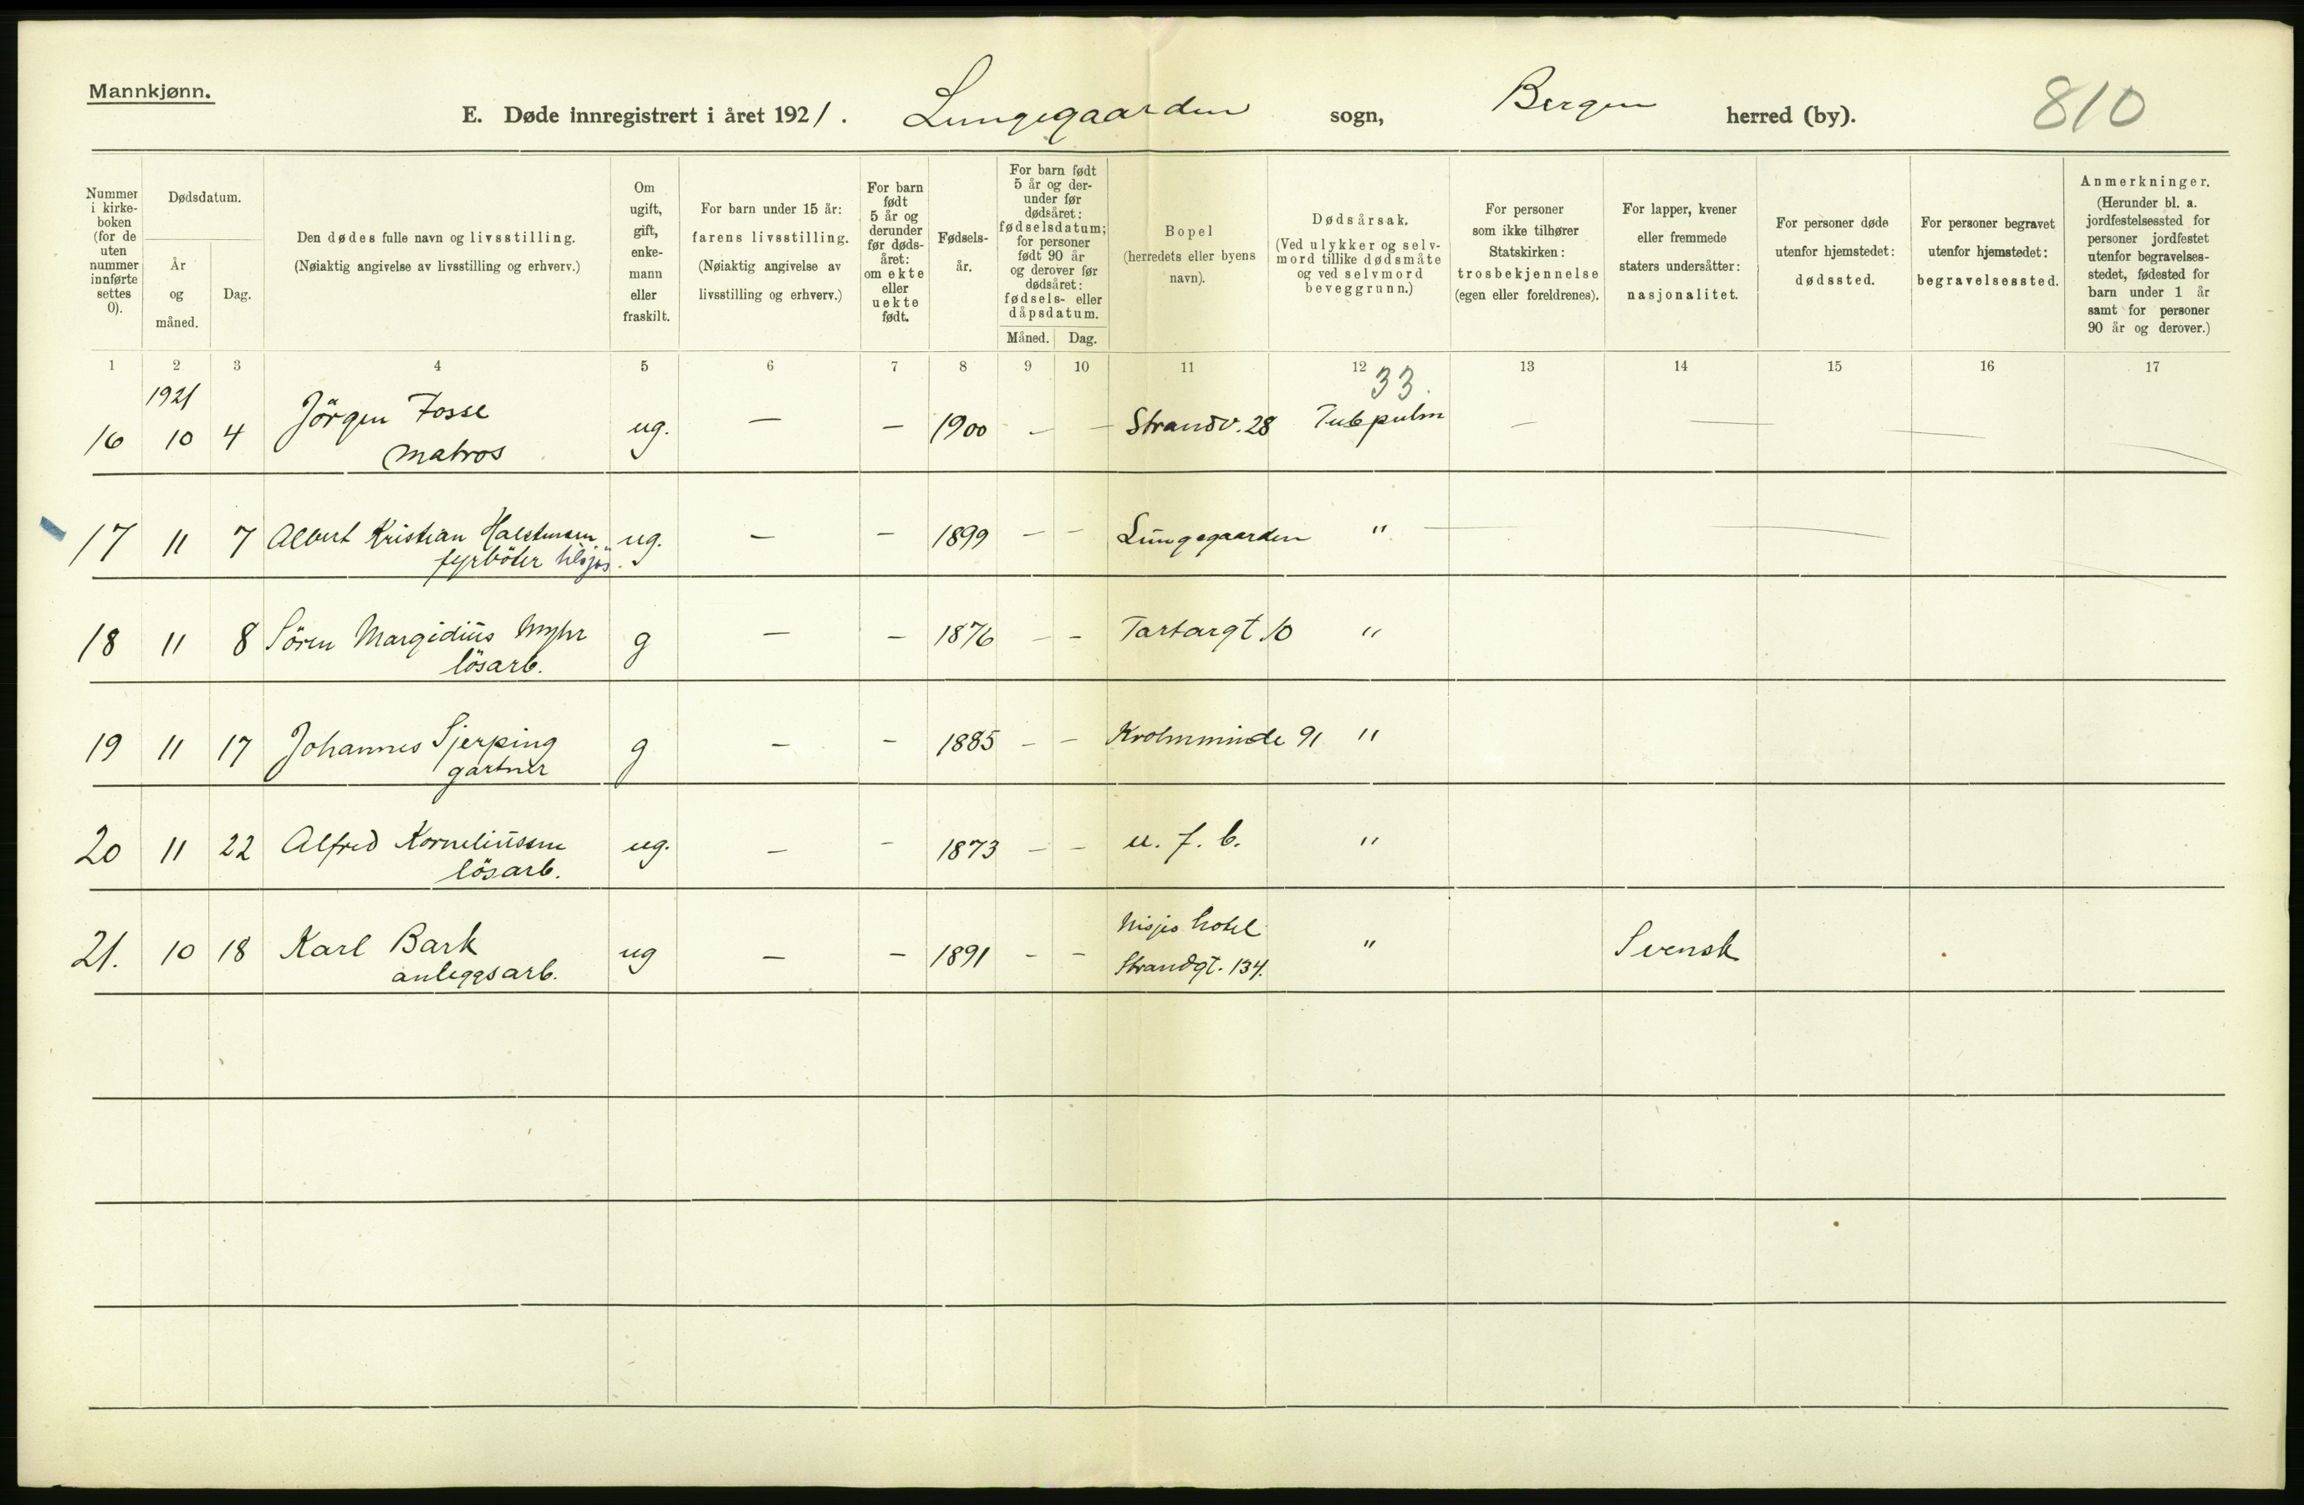 Mannkjønn.
E. Døde innregistrert i året 1921. Lungegaarden sogn, Bergen herred (by). 810
Nummer i kirke-boken (for de uten nummer innførte settes 0).
Dødsdatum.
År og måned.
Dag.
Den dødes fulle navn og livsstilling.
(Nøiaktig angivelse av livsstilling og erhverv.)
Om ugift, gift, enke-mann eller fraskilt.
For barn under 15 år:
farens livsstilling.
(Nøiaktig angivelse av livsstilling og erhverv.)
For barn født 5 år og derunder før døds-året: om ekte eller uekte født.
Fødsels-år.
For barn født 5 år og der-under før dødsåret: fødselsdatum; for personer født 90 år og derover før dødsåret: fødsels- eller dåpsdatum.
Måned. Dag.
Bopel
(herredets eller byens navn).
Dødsårsak.
(Ved ulykker og selv-mord tillike dødsmåte og ved selvmord beveggrunn.)
For personer som ikke tilhører Statskirken:
trosbekjennelse
(egen eller foreldrenes).
For lapper, kvener eller fremmede staters undersåtter:
nasjonalitet.
For personer døde utenfor hjemstedet:
dødssted.
For personer begravet utenfor hjemstedet:
begravelsessted.
Anmerkninger.
(Herunder bl. a. jordfestelsessted for personer jordfestet utenfor begravelses-stedet, fødested for barn under 1 år samt for personer 90 år og derover.)
1 2 3 4 5 6 7 8 9 10 11 12 13 14 15 16 17
1921 33.
16 10 4 Jörgen Fosse ug. — — 1900 — — Strandv. 28 Tub pulm — — — —
matros
17 11 7 Albert Kristian Halstensen ug. — — 1899 — — Lungegaarden " — — —
fyrböter tilsjös.
18 11 8 Sören Margidius Myhr g — — 1876 — — Tartargt. 10 "
lösarb.
19 11 17 Johannes Sjerping g — — 1885 — — Krohnminde 91 "
gartner
20 11 22 Alfred Korneliussen ug. — — 1873 — — u. f. b. "
lösarb.
21. 10 18 Karl Bark ug — — 1891 — — Misjes hotel " Svensk
anleggsarb. Strandgt. 134.